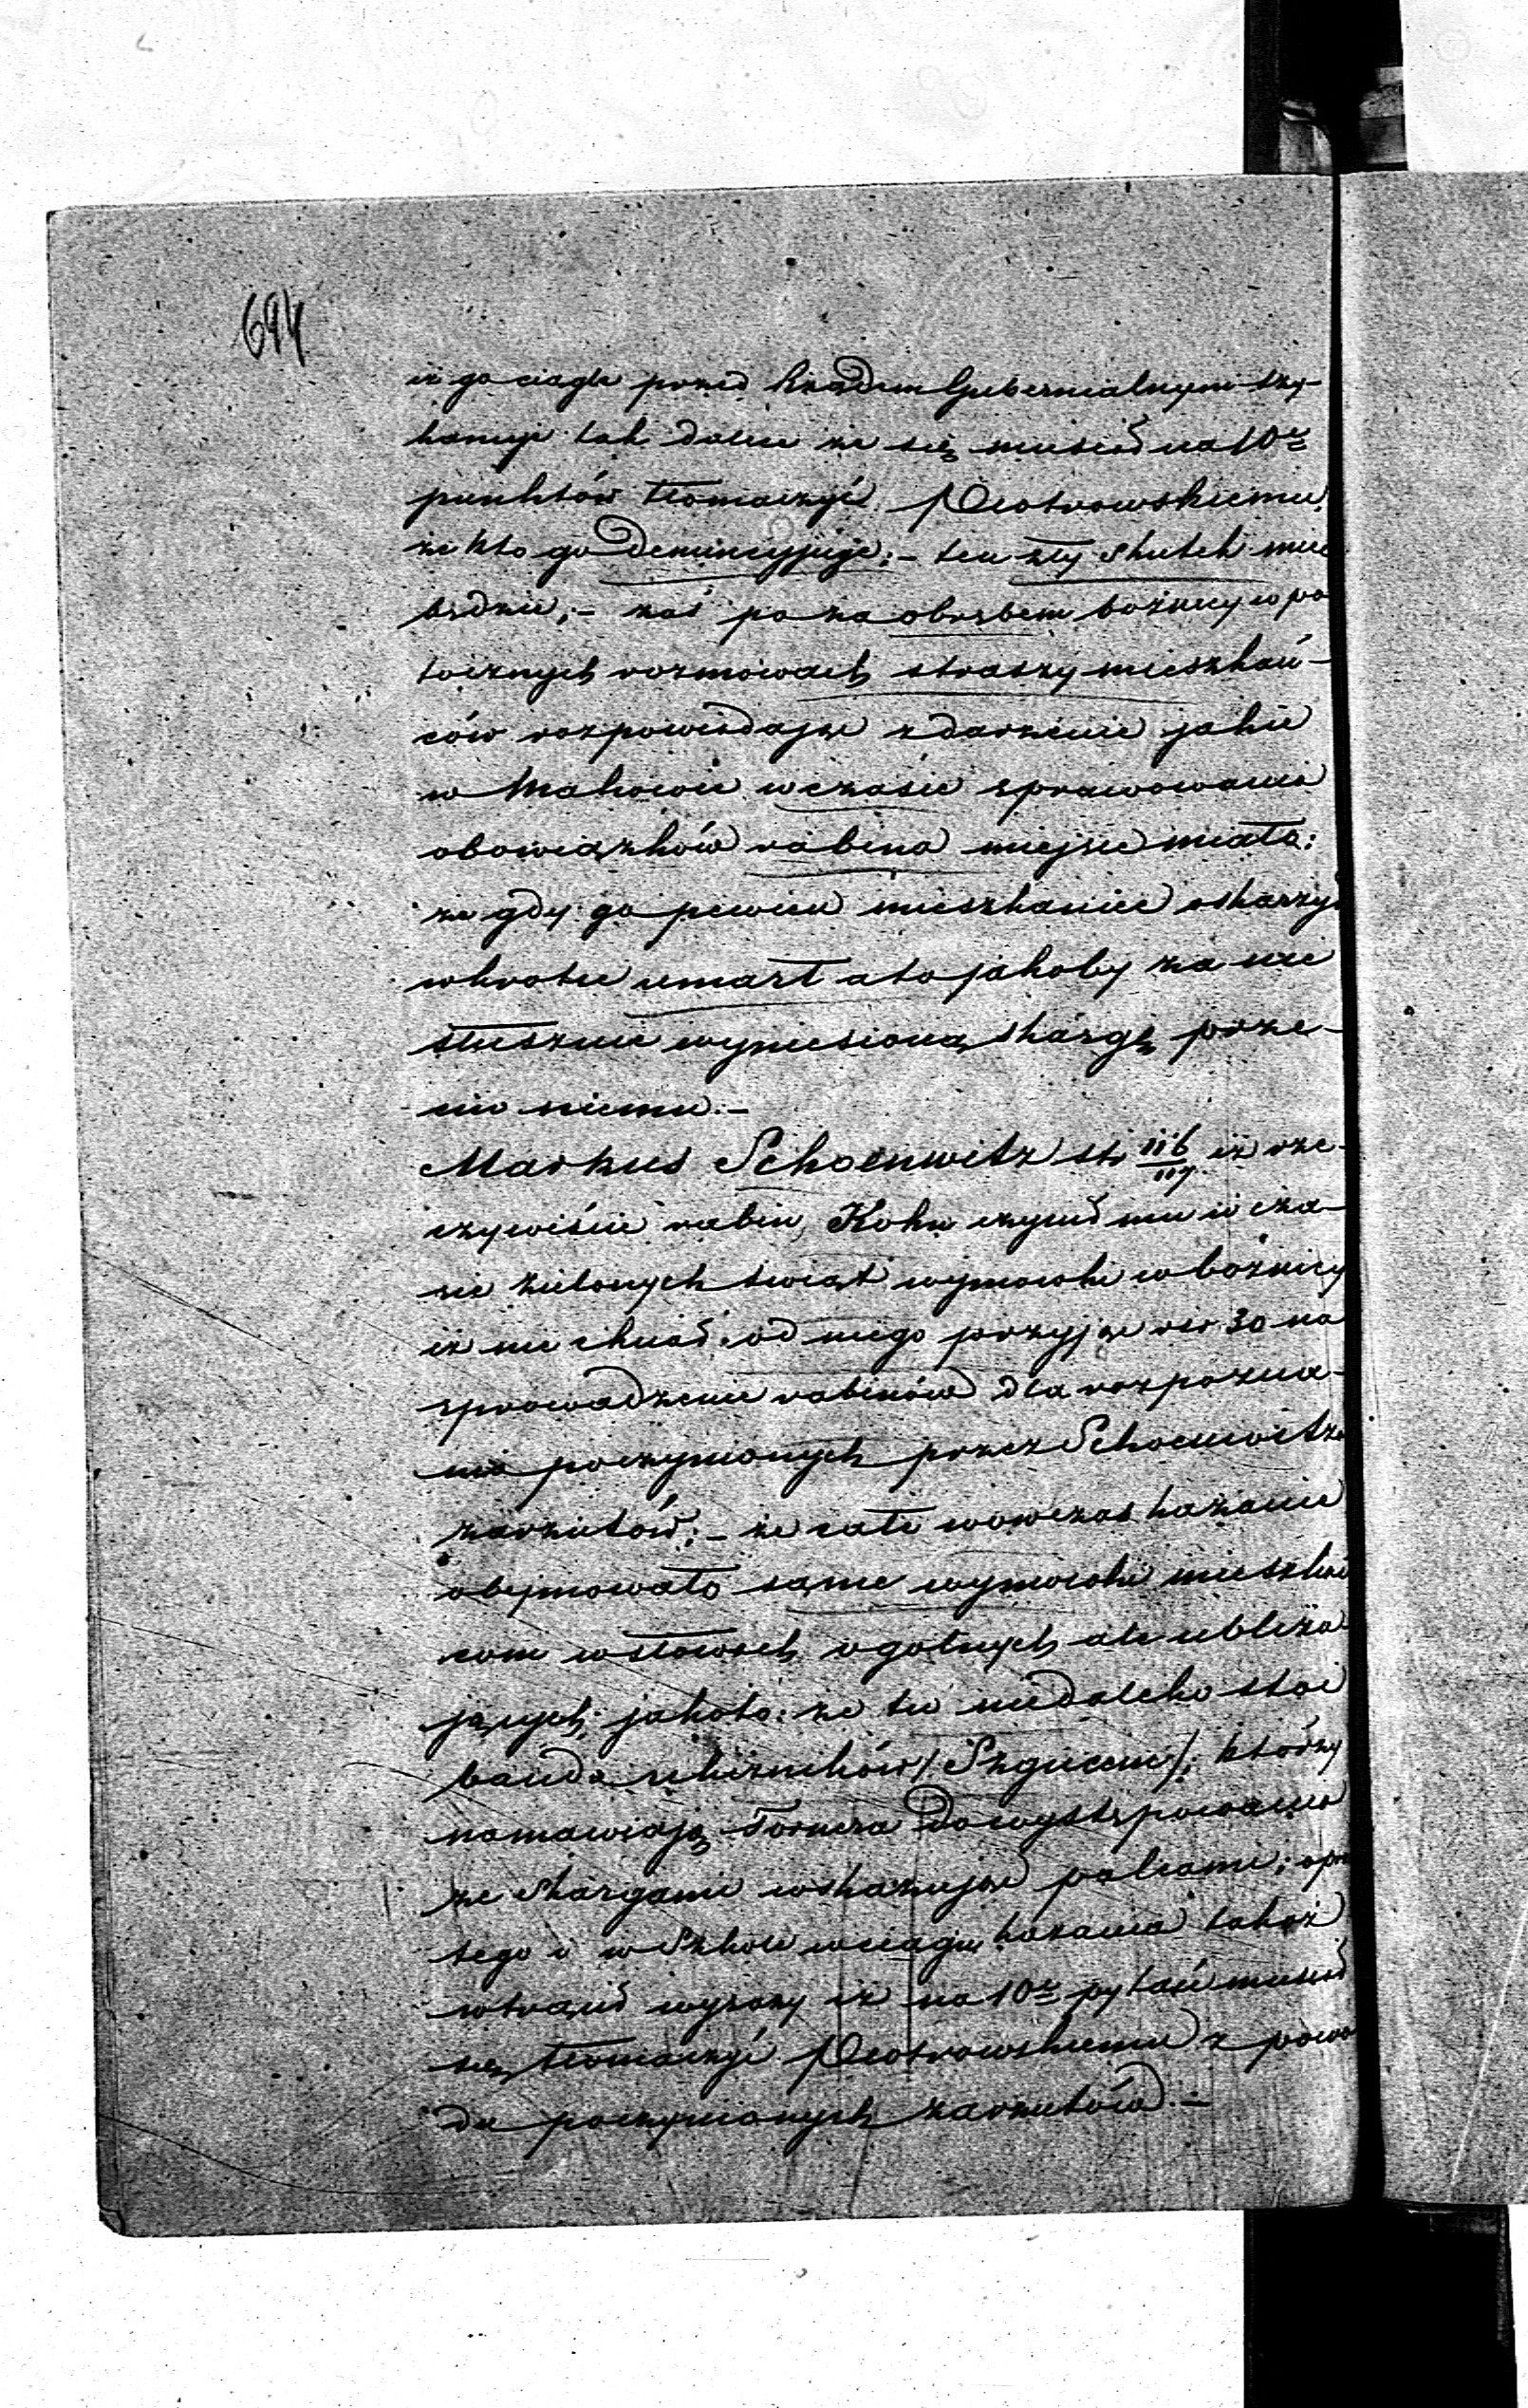 694
iż go ciągle przed Rządem Gubernialnym szy-
kanuje tak dalece że się musiał na 10u
punktów tłomaczyć Piotrowskiemu,
że kto go denuncyjuje; – ten zły skutek mieć
będzie; – zaś poza obrębem bożnicy w po
tocznych rozmowach straszy mieszkań-
ców rozpowiadając zdarzenie jakie
w Makowie w czasie sprawowania
obowiązków rabina miejsce miało:
że gdy go pewien mieszkaniec oskarzył
wkrotce umarł a to jakoby za nie
słusznie wyniesioną skargę prze-
ciw niemu. –
Markus Schoenwitz str 116/117 iż rze-
czywiście rabin Kohn czynił mu w cza-
sie zielonych świąt wymowki w bożnicy
iż nie chciał od niego przyjąc rsr 30 na
sprowadzenie rabinów dla rozpozna-
nia poczynionych przez Schoenwitza
zarzutów; – że całe wowczas kazanie
obejmowało same wymowki mieszkań
com w słowach ogolnych ale ubliża
jących, jakoto: że tu niedaleko stoi
banda ulicznikow / Szgucem /, którzy
namawiają Tornera do występowania
ze skargami wskazując palcami; opr
tego i w Szkole w ciągu kazania takoż
wtrącił wyrazy iż na 10u pytań musiał
się tłomaczyć Piotrowskiemu z powo
du poczynionych zarzutów. –